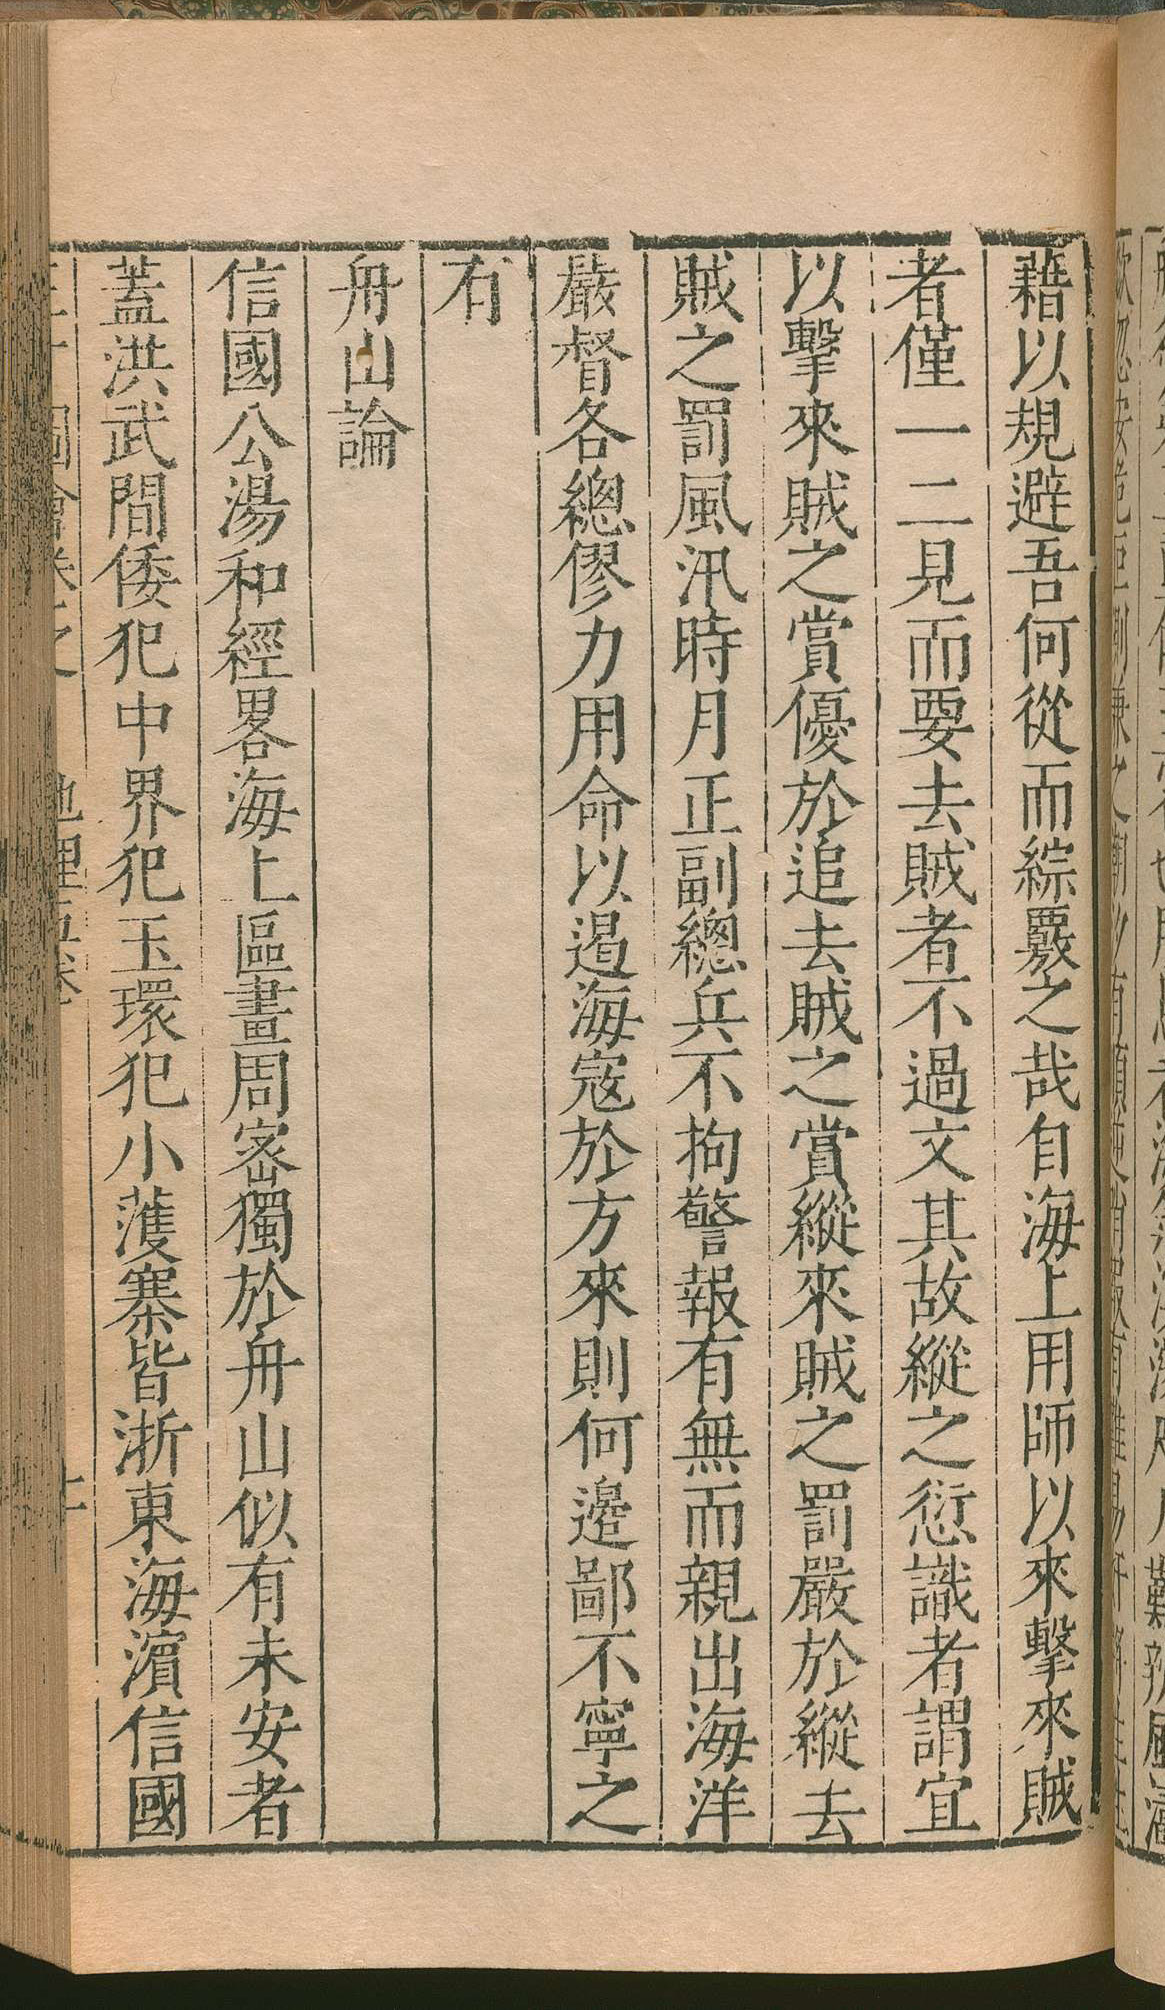 藉以規避吾何從而綜覈之哉自海上用師以來擊來賊
者僅一二見而要去賊者不過文其故縱之愆識者謂宜
以擊來賊之賞優於追去賊之賞縱來賊之罰嚴於縱去
賊之罰風汛時月正副總兵不拘警報有無而親出海洋
嚴督各總僇力用命以遏海寇於方來則何邊鄙不寧之
有
舟山論
信國公湯和經畧海上區畫周宻獨於舟山似有未安者
蓋洪武間倭犯中界犯玉環犯小蒦寨皆浙東海濵信國